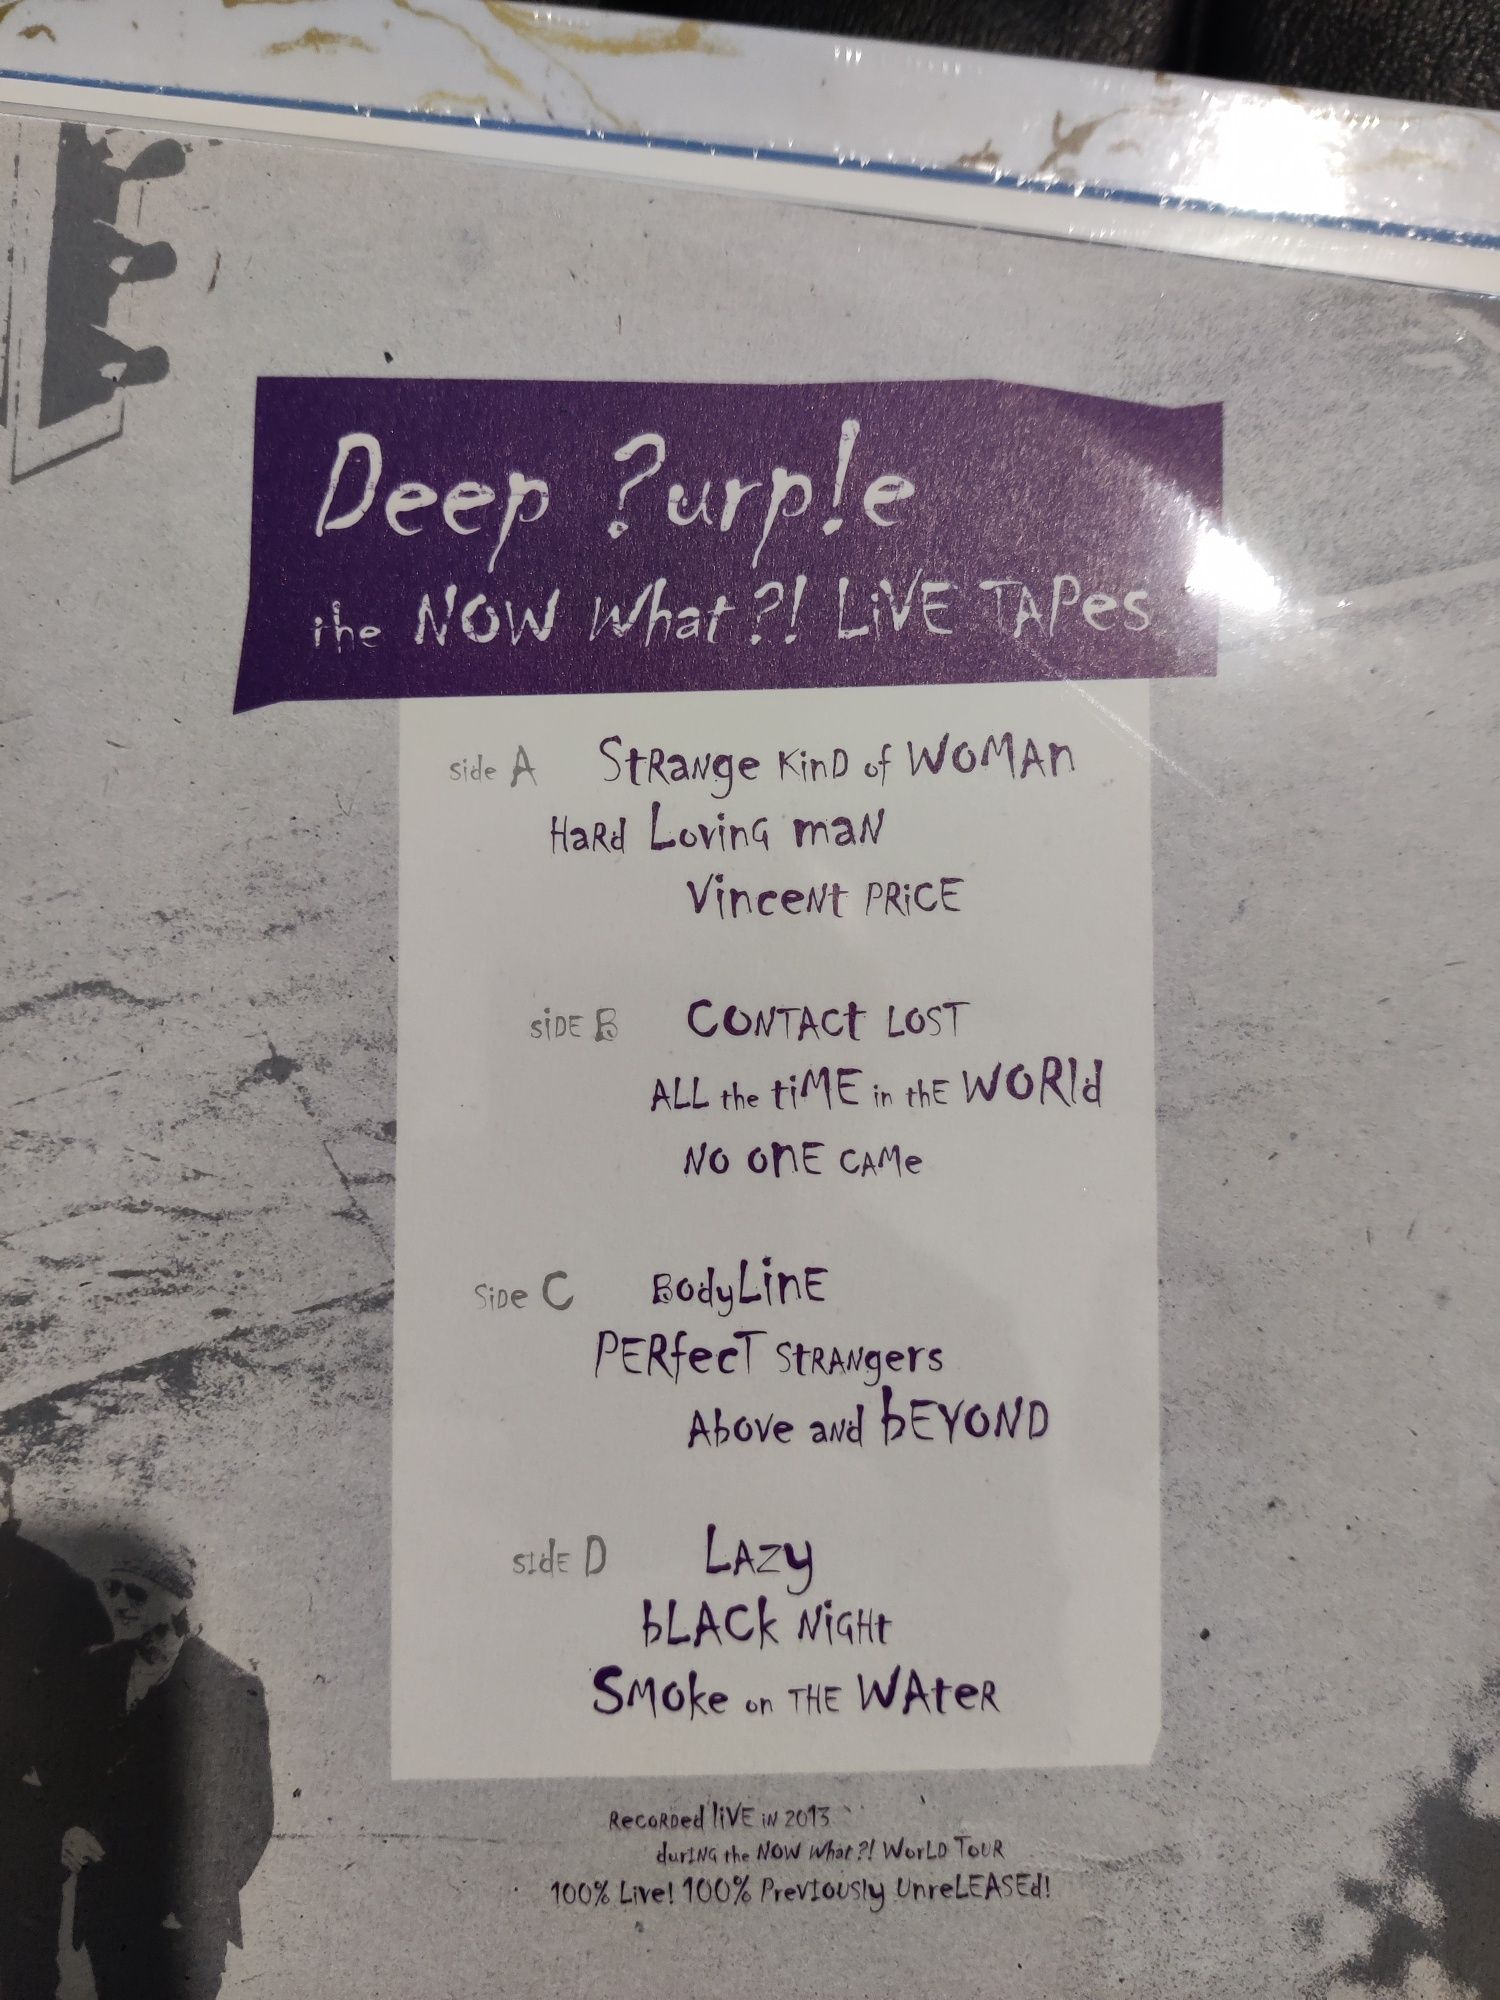 Deep ?urp!e
the NOW What?! LiVE TAPes
side A StRaNge KinD of WOMAn
HaRd LovinG maN
VinceNt PRiCE
siDE B CONTACt LOST
ALL the tiME in thE WORld
NO OnE CAMe
SiDe C BodyLinE
PERfecT StRANgers
Above aNd bEYOND
sIdE D LAZy
bLACk NiGHt
SMOke on THE WAteR
RecoRDed liVE iN 2013
durING the NOW What?! WorLD TOUR
100% Live! 100% PrevIoUSly UnreLEASEd!